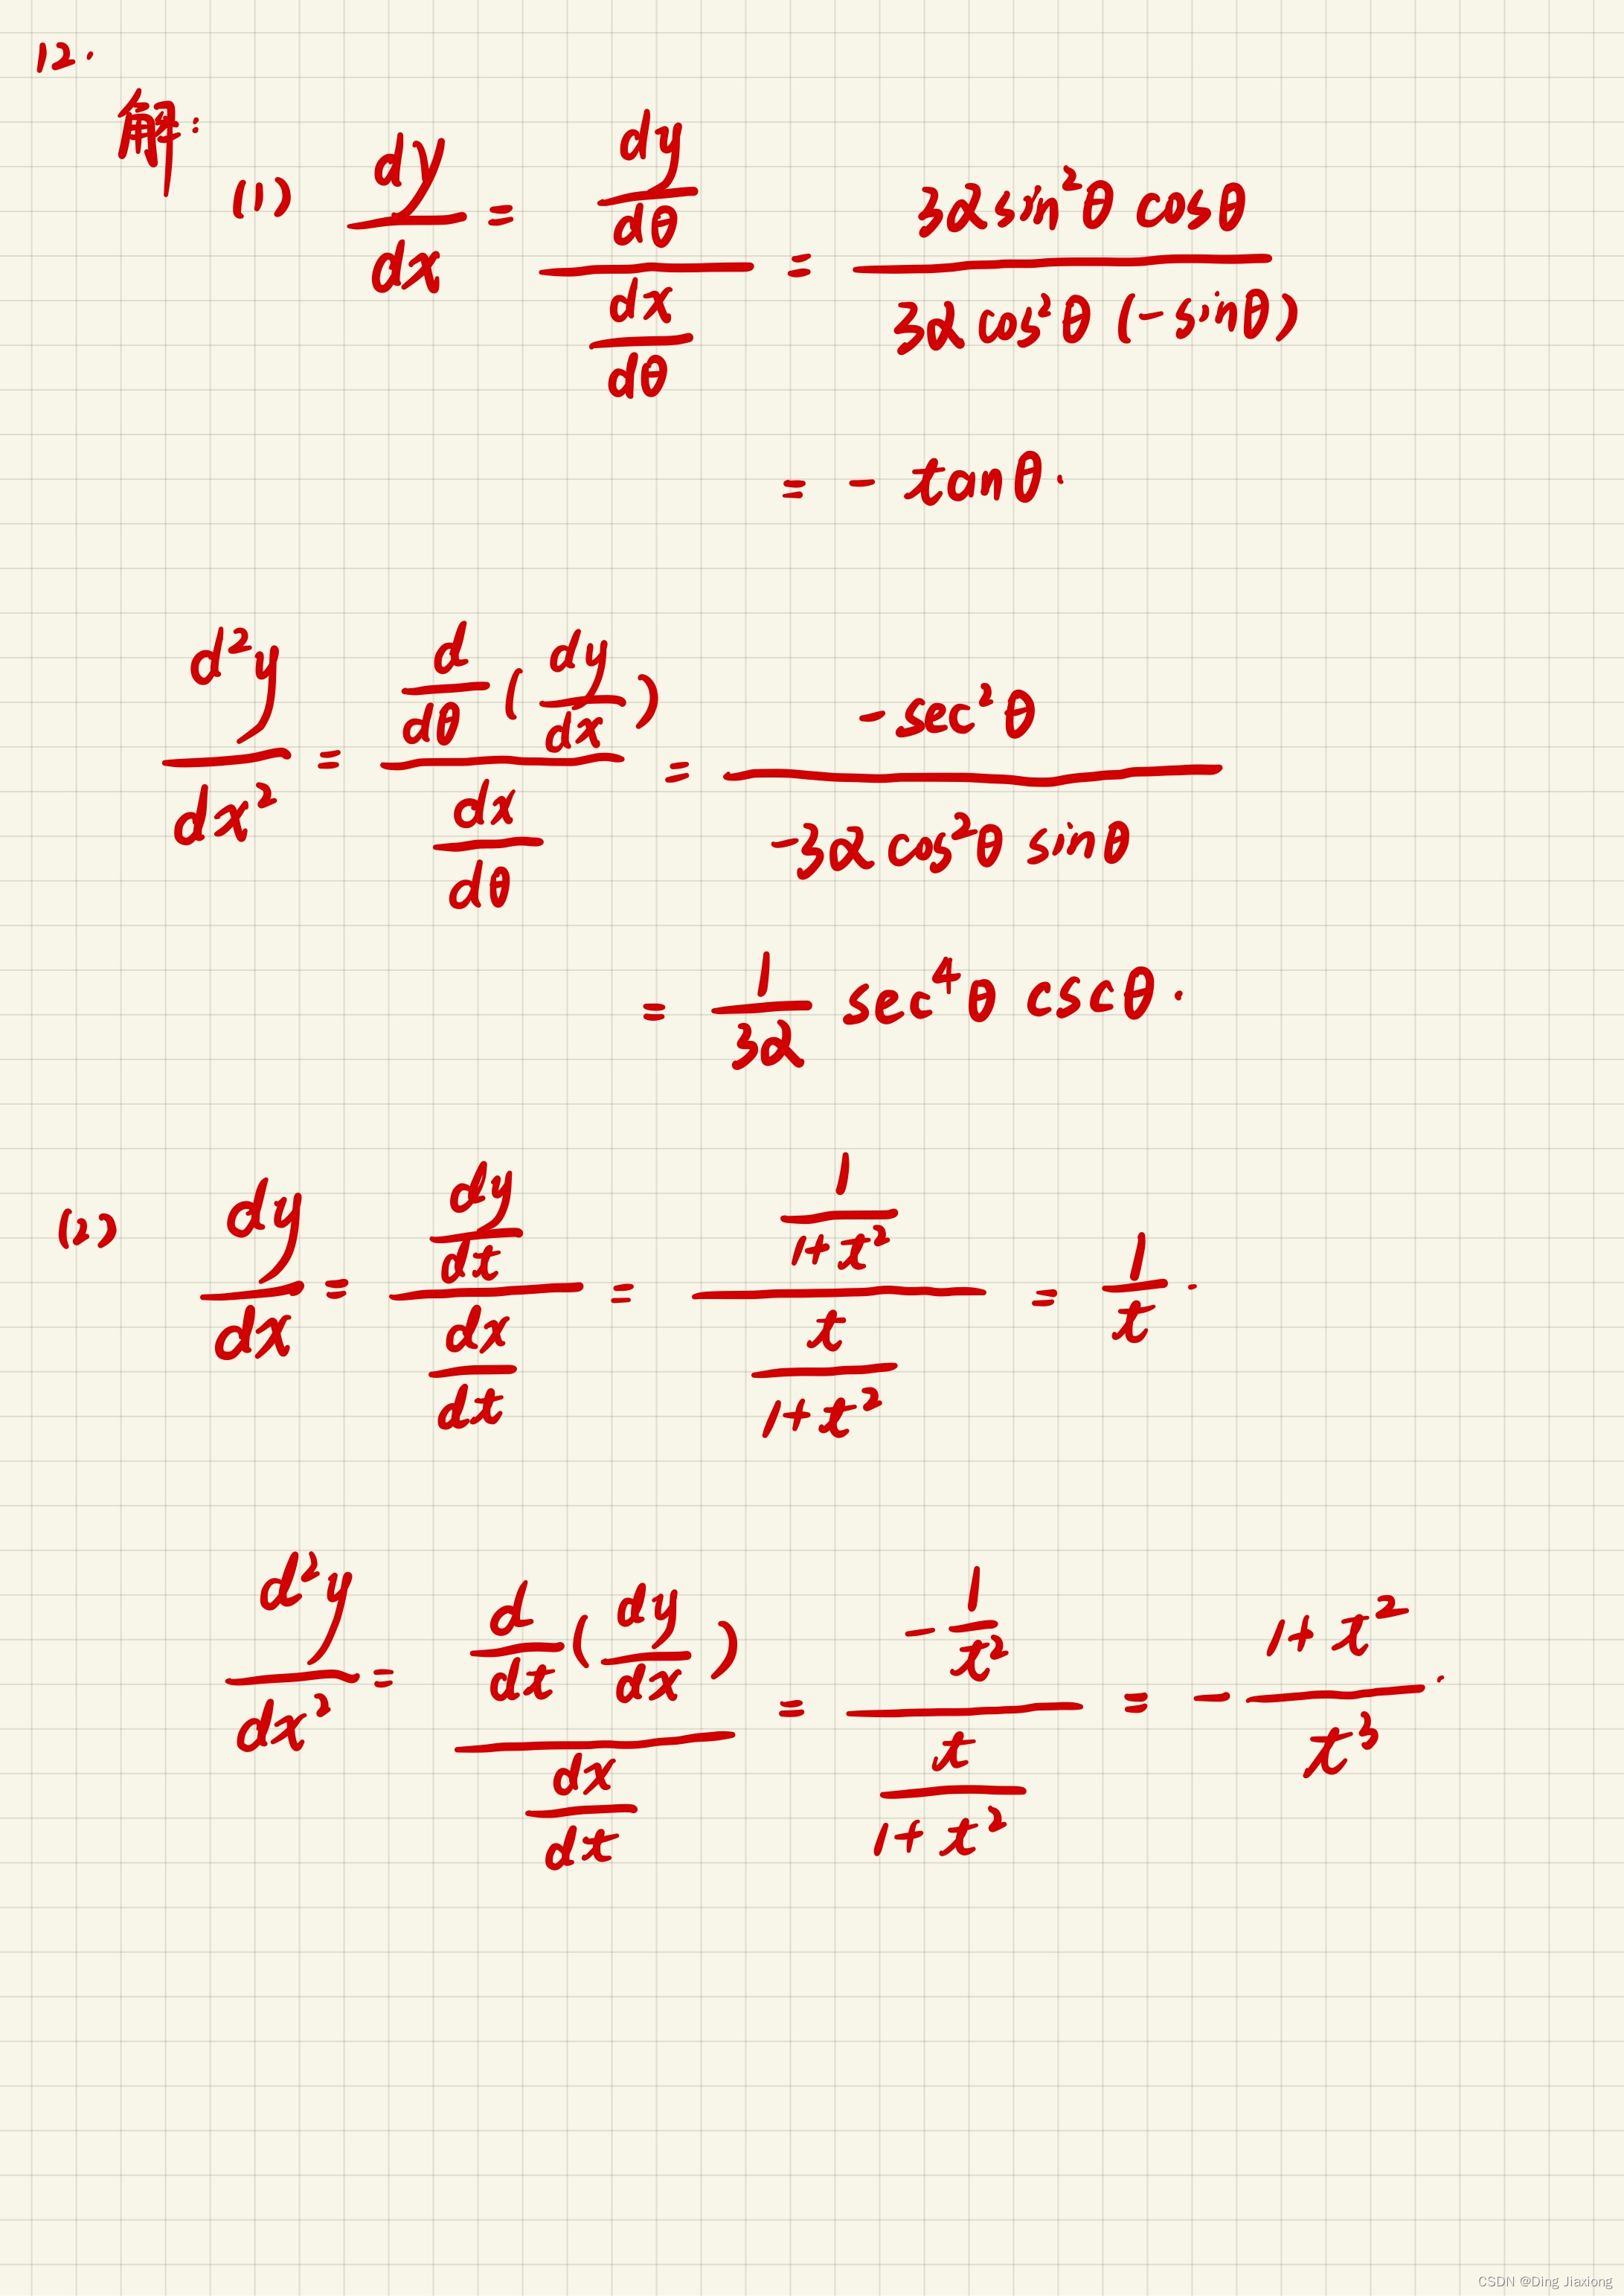 12.
解:
(1) \frac{dy}{dx} = \frac{\frac{dy}{dθ}}{\frac{dx}{dθ}} = \frac{3α sin^2θ cosθ}{3α cos^2θ (-sinθ)}
= - tanθ.
\frac{d^2y}{dx^2} = \frac{\frac{d}{dθ}(\frac{dy}{dx})}{\frac{dx}{dθ}} = \frac{-sec^2θ}{-3α cos^2θ sinθ}
= \frac{1}{3α} sec^4θ cscθ.
(2) \frac{dy}{dx} = \frac{\frac{dy}{dt}}{\frac{dx}{dt}} = \frac{\frac{1}{1+t^2}}{\frac{t}{1+t^2}} = \frac{1}{t}.
\frac{d^2y}{dx^2} = \frac{\frac{d}{dt}(\frac{dy}{dx})}{\frac{dx}{dt}} = \frac{-\frac{1}{t^2}}{\frac{t}{1+t^2}} = -\frac{1+t^2}{t^3}.
CSDN @Ding Jiaxiong